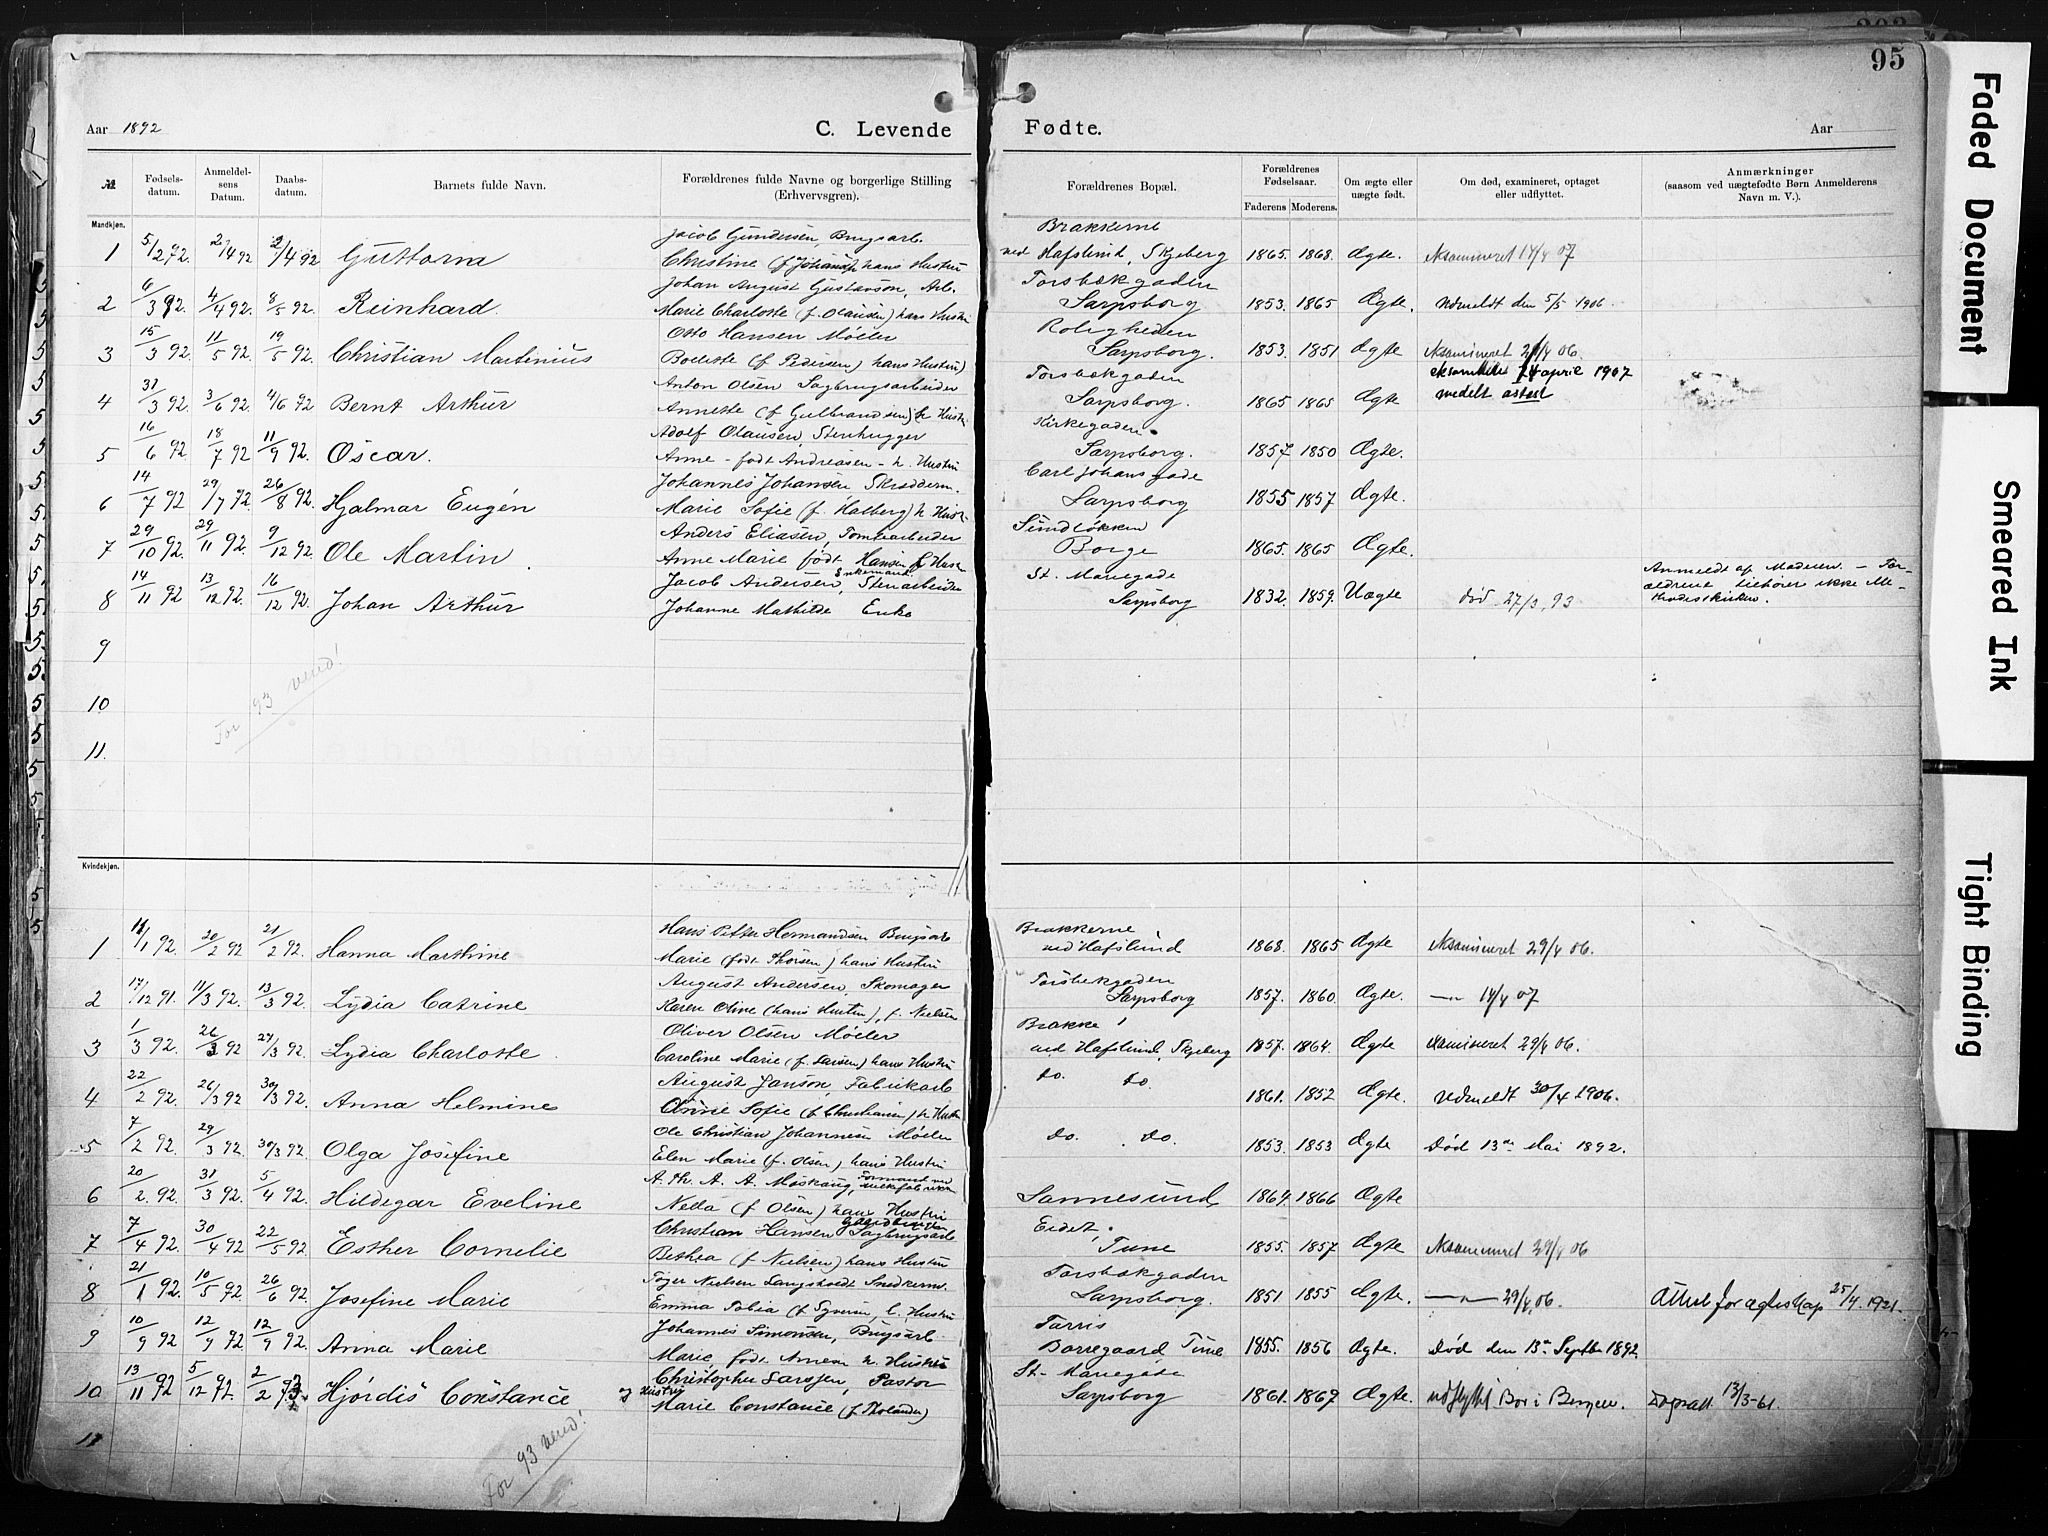 95
Aar 1892
C. Levende Fødte.
Aar
№
Fødsels-datum.
Anmeldel-sens Datum.
Daabs-datum.
Barnets fulde Navn.
Forældrenes fulde Navne og borgerlige Stilling (Erhvervsgren).
Forældrenes Bopæl.
Forældrenes Fødselsaar.
Faderens Moderens.
Om ægte eller uægte født.
Om død, examineret, optaget eller udflyttet.
Anmærkninger (saasom ved uægtefødte Børn Anmelderens Navn m. V.).
Mandkjøn.
Jacob Gundersen, Brugsarb. Brakkerne
1 5/2 92. 2/4 92 2/4 92 Guttorm Christine (f Johansen) hans Hustru ved Hafslund, Skjeberg 1865. 1868. Ægte. Eksamineret 14/4 07
Johan August Gustavson, Arb. Torsbækgaden
2 6/3 92. 4/4 92. 8/5 92. Reinhard. Marie Charlotte (f. Olausen) hans Hustru Sarpsborg 1853. 1865 Ægte. Udmeldt den 5/5 1906.
Otto Hansen Møller Roligheden
3 15/3 92. 11/5 92. 19/5 92. Christian Martinius Bollette (f Pedersen) hans Hustru) Sarpsborg. 1853. 1851 Ægte Eksamineret 29/4 06.
Anton Olsen Sagbrugsarbeider Torsbækgaden april 1907
4 31/3 92. 3/6 92. 4/6 92 Bernt Arthur Annette (f Gulbrandsen) h Hustru Sarpsborg. 1865 1865 Ægte
Adolf Olausen, Stenhugger Kirkegaden.
5 16/6 92 18/7 92 11/9 92. Oscar. Anne - født Andreasen - h. Hustru Sarpsborg. 1857 1850 Ægte.
Johannes Johansen Skrædderm. Carl Johans gade
6 14/7 92 29/7 92 26/8 92. Hjalmar Eugén Marie Sofie (f. Hatberg) h Hustr. Sarpsborg 1855 1857 Ægte.
Anders Eliasen, Tomtearbeider Sundløkken
7 29/10 92. 29/11 92. 9/12 92. Ole Martin. Anne Marie født Hansen h Hustru Borge 1865. 1865 Ægte.
Jacob Andersen, Enkemand. Stenarbeider St. Mariegade Anmeldt af Moderen. - For-
8 14/11 92 13/12 92. 16/12 92. Johan Arthur Johanne Mathilde Enke Sarpsborg 1832. 1859. Uægte død 27/3, 93 ældrene tilhører ikke Me-
thodistkirken.
9
10
11
For 93 vend!
Kvindekjøn.
Hans Petter Hermandsen Brugsarb Brakkerne
1 18/1 92. 20/2 92 21/2 92. Hanna Marthine Marie (født Thorsen) hans Hustru ved Hafslund 1868. 1865 Ægte Eksamineret 29/4 06.
August Andersen, Skomager Torsbekgaden
2 17/12 91. 11/3 92. 13/3 92. Lydia Catrine Karen Oline (hans Hustru), f. Nielsen Sarpsborg 1857. 1860. Ægte. —"— 14/4 07
Oliver Olsen Møller Brakke
3 1/3 92. 26/3 92 27/3 92. Lydia Charlotte. Caroline Marie (f. Larsen) hans Hustru ved Hafslund, Skjeberg 1857. 1864. Ægte Examineret 29/4 06.
August Janson, Fabrikarb do. do.
4 22/2 92. 26/3 92 30/3 92. Anna Helmine Annie Sofie (f Christiansen) h Hustru 1861. 1852 Ægte. Udmeldt 30/4 1906.
Ole Christian Johannesen Møller do. do.
5 7/2 92. 29/3 92. 30/3 92. Olga Josefine Elen Marie (f. Olsen) hans Hustru 1853. 1853 Ægte Død 13de Mai 1892.
A. Th. A. A. Moskaug, Formand ved
6 20/2 92. 31/3 92. 5/4 92. Hildegar Eveline Netta (f Olsen) hans Hustru Sannesund 1864. 1866 Ægte
Christian Hansen Sagbrugsarb Eidet,
7 7/4 92. 30/4 92 22/5 92 Esther Cornelie Bethea (f Nielsen) hans Hustru Tune 1855. 1857 Ægte Eksamineret 29/4 06
Töger Nielsen Langsholdt Snedkerm. Torsbækgaden
8 21/1 92. 10/5 92 26/6 92. Josefine Marie Emma Tobia (f Syversen, h. Hustru Sarpsborg. 1851 1855 Ægte. —"— 29/4, 06. Attest for ægteskap 25/4. 1921.
Johannes Simonsen, Brugsarb. Torris
9 10/9 92 12/9 92 12/9 92. Anna Marie Marie født h. Hustru Borregaard Tune 1855. 1856 Ægte. Død den 13de Septbr 1892.
Christopher Larssen, Pastor St. Mariegade
10 13/11 92 5/12 92. 2/2 93. Hjördis Constance og Hustru Marie Constance (f. Tholander) Sarpsborg 1861. 1867 Ægte. udflyttet Bor i Bergen. Dåpsatt 13/3-61.
11
For 93 vend!
Faded Document
Smeared Ink
Tight Binding